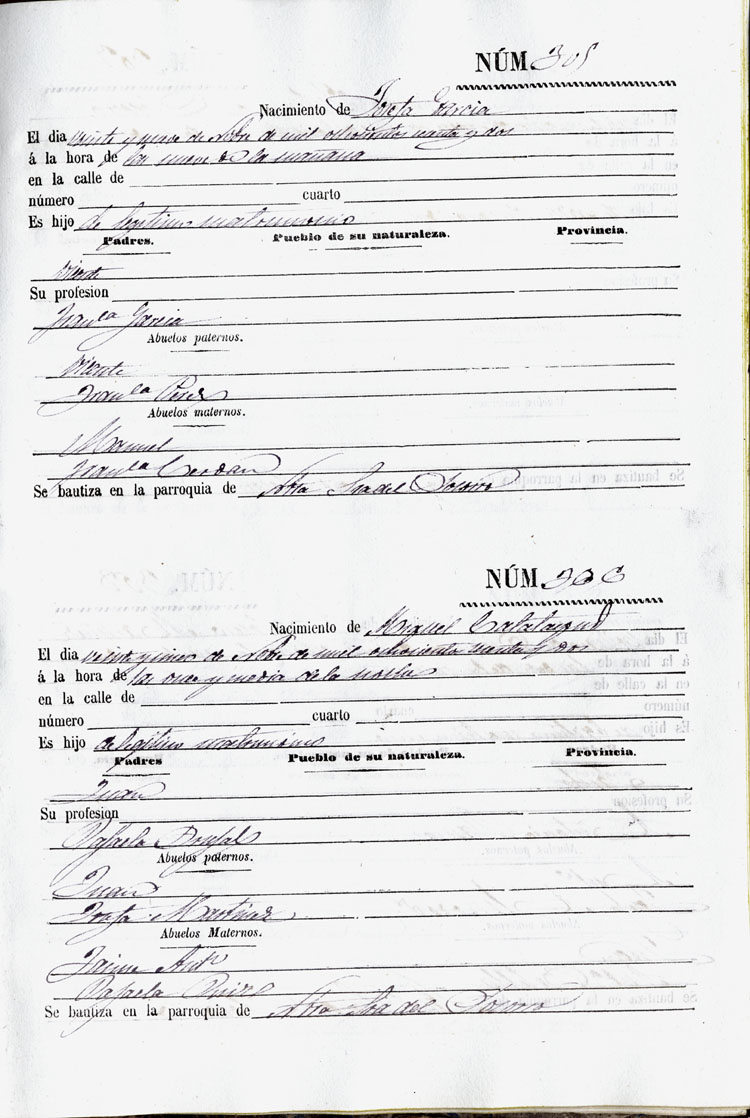 NÚM 305
Nacimiento de Josefa Garcia
El dia veinte y nueve de Nbre de mil ochocientos y dos
á la hora de las nueve de la mañana
en la calle de
número cuarto
Es hijo de legitimo matrimonio
Padres. Pueblo de su naturaleza. Provincia.
Vicente
Su profesion
Franca Garcia
Abuelos paternos.
Vicente
Franca Perez
Abuelos maternos.
Manuel
Franca Cerdan
Se bautiza en la parroquia de Ntra Sra del Socorro
NÚM 306
Nacimiento de Miguel Calatayud
El dia veinte y de Nbre de mil ochocientos y dos
á la hora de la once y media de la noche
en la calle de
número cuarto
Es hijo de legitimo matrimonio
Padres Pueblo de su naturaleza. Provincia.
Juan
Su profesion
Rafaela Brufal
Abuelos paternos.
Juan
Josefa Martinez
Abuelos Maternos.
Jaime Anto
Rafaela
Se bautiza en la parroquia de Ntra Sra del Socorro